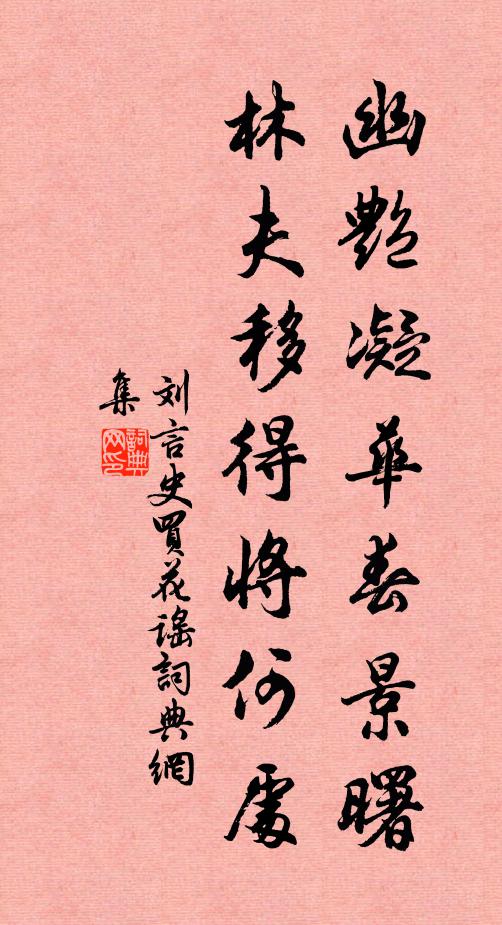 幽艷凝華春景曙
林夫移得將何處
刘言史買花謠詞典網
集
詞典
网印